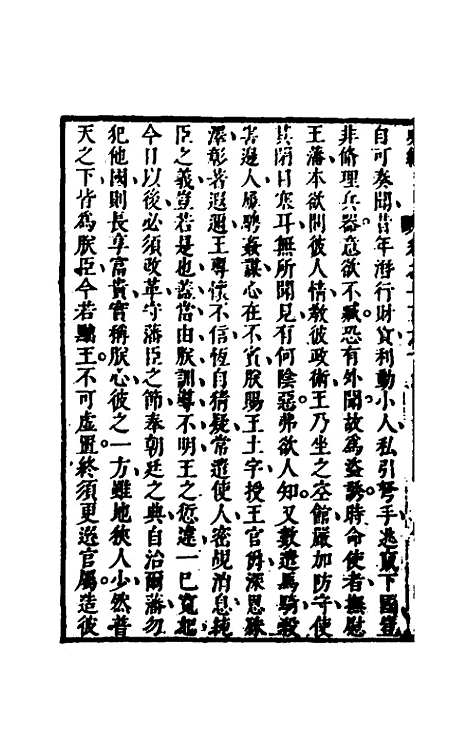 自可奏聞昔年潛行財貨利動小人私引弩手逃竄下國豈
非脩理兵器意欲不臧恐有外聞故為盜竊時命使者撫慰
王藩本欲問彼人情教彼政術王乃坐之空館嚴加防守使
其閉目塞耳無所聞見有何陰惡弗欲人知又數遣馬騎殺
害邊人屢騁姦謀心在不賓朕賜王土宇授王官爵深恩殊
澤彰著遐邇王專懷不信恆自猜疑常遣使人密覘消息純
臣之義豈若是也蓋當由朕訓導不明王之愆違一已寬恕
今日以後必須改革守藩臣之節奉朝廷之典自治爾藩勿
犯他國則長享富貴實稱朕心彼之一方雖地狹人少然普
天之下皆為朕臣今若黜王不可虛置終須更選官屬造彼